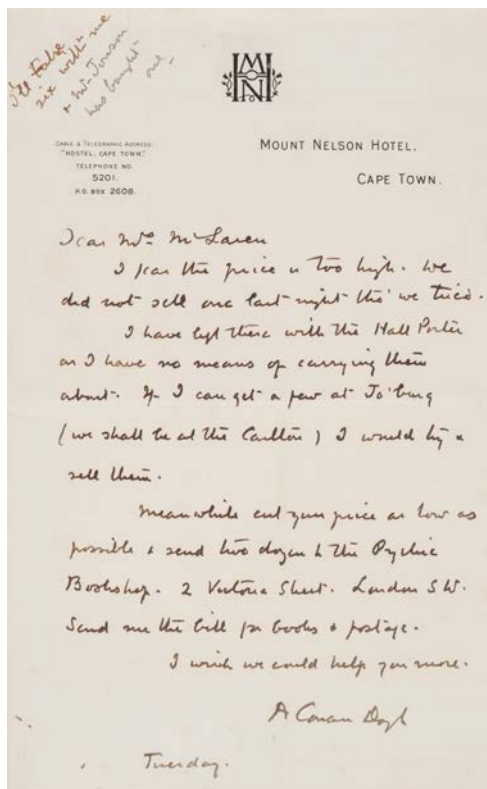 I'll take
six with me
& Mr Jonson
has bought
one
MHN
CABLE & TELEGRAPHIC ADDRESS:
"HOSTEL, CAPE TOWN".
TELEPHONE NO.
5201.
P.O. BOX 2608.
MOUNT NELSON HOTEL,
CAPE TOWN.
Dear Mrs McLaren
I fear the price is too high. We
did not sell one last night tho' we tried.
I have left these with the Hall Porter
as I have no means of carrying them
about. If I can get a few at Jo'burg
(we shall be at the Carlton) I would try &
sell them.
Meanwhile cut your price as low as
possible & send two dozen to the Psychic
Bookshop. 2 Victoria Street. London S.W.
Send me the bill for books & postage.
I wish we could help you more.
A Conan Doyle
Tuesday.